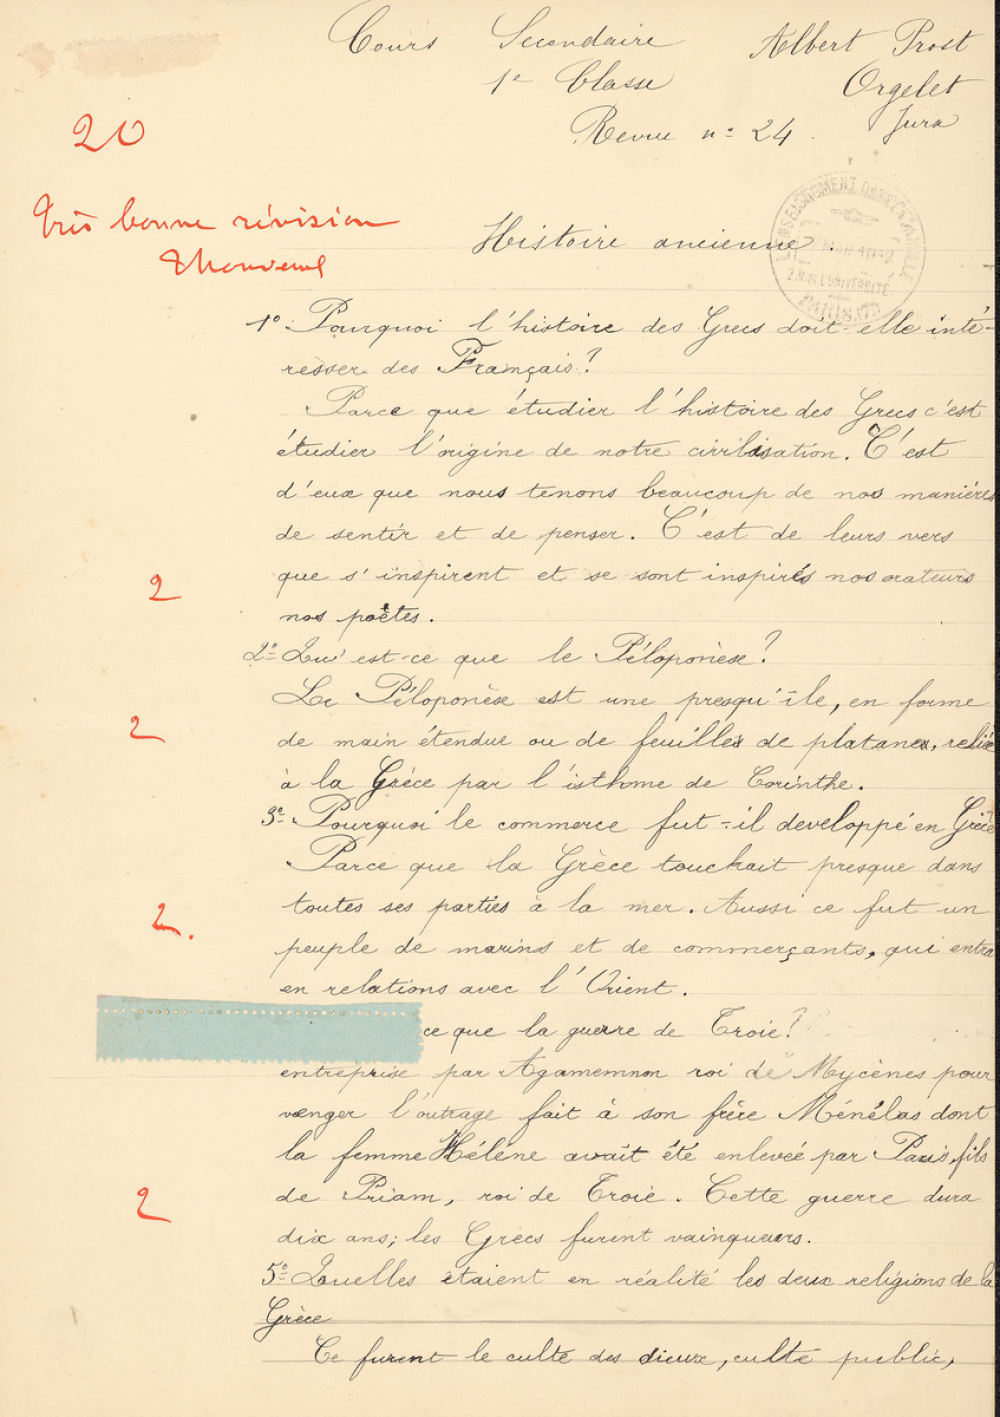 Cours Secondaire Albert Prost
1e Classe Orgelet
Revue n° 24. Jura
20
Très bonne révision
Histoire ancienne.
1° Pourquoi l'histoire des Grecs doit-elle inté-
resser des Français?
Parce que étudier l'histoire des Grecs c'est
étudier l'origine de notre civilisation. C'est
d'eux que nous tenons beaucoup de nos manières
de sentir et de penser. C'est de leurs vers
que s'inspirent et se sont inspirés nos orateurs
2
nos poètes.
2° Qu'est-ce que le Péloponèse?
Le Péloponèse est une presqu'île, en forme
2
de main étendue ou de feuilles de platanes, reliée
à la Grèce par l'isthme de Corinthe.
3° Pourquoi le commerce fut-il developpé en Grèce
Parce que la Grèce touchait presque dans
toutes ses parties à la mer. Aussi ce fut un
2.
peuple de marins et de commerçants, qui entra
en relations avec l'Orient.
ce que la guerre de Troie?
entreprise par Agamemnon roi de Mycènes pour
venger l'outrage fait à son frère Ménélas dont
la femme Hélène avait été enlevée par Paris, fils
2
de Priam, roi de Troie. Cette guerre dura
dix ans; les Grecs furent vainqueurs.
5° Quelles étaient en réalité les deux religions de la
Grèce
Ce furent le culte des dieux, culte public,